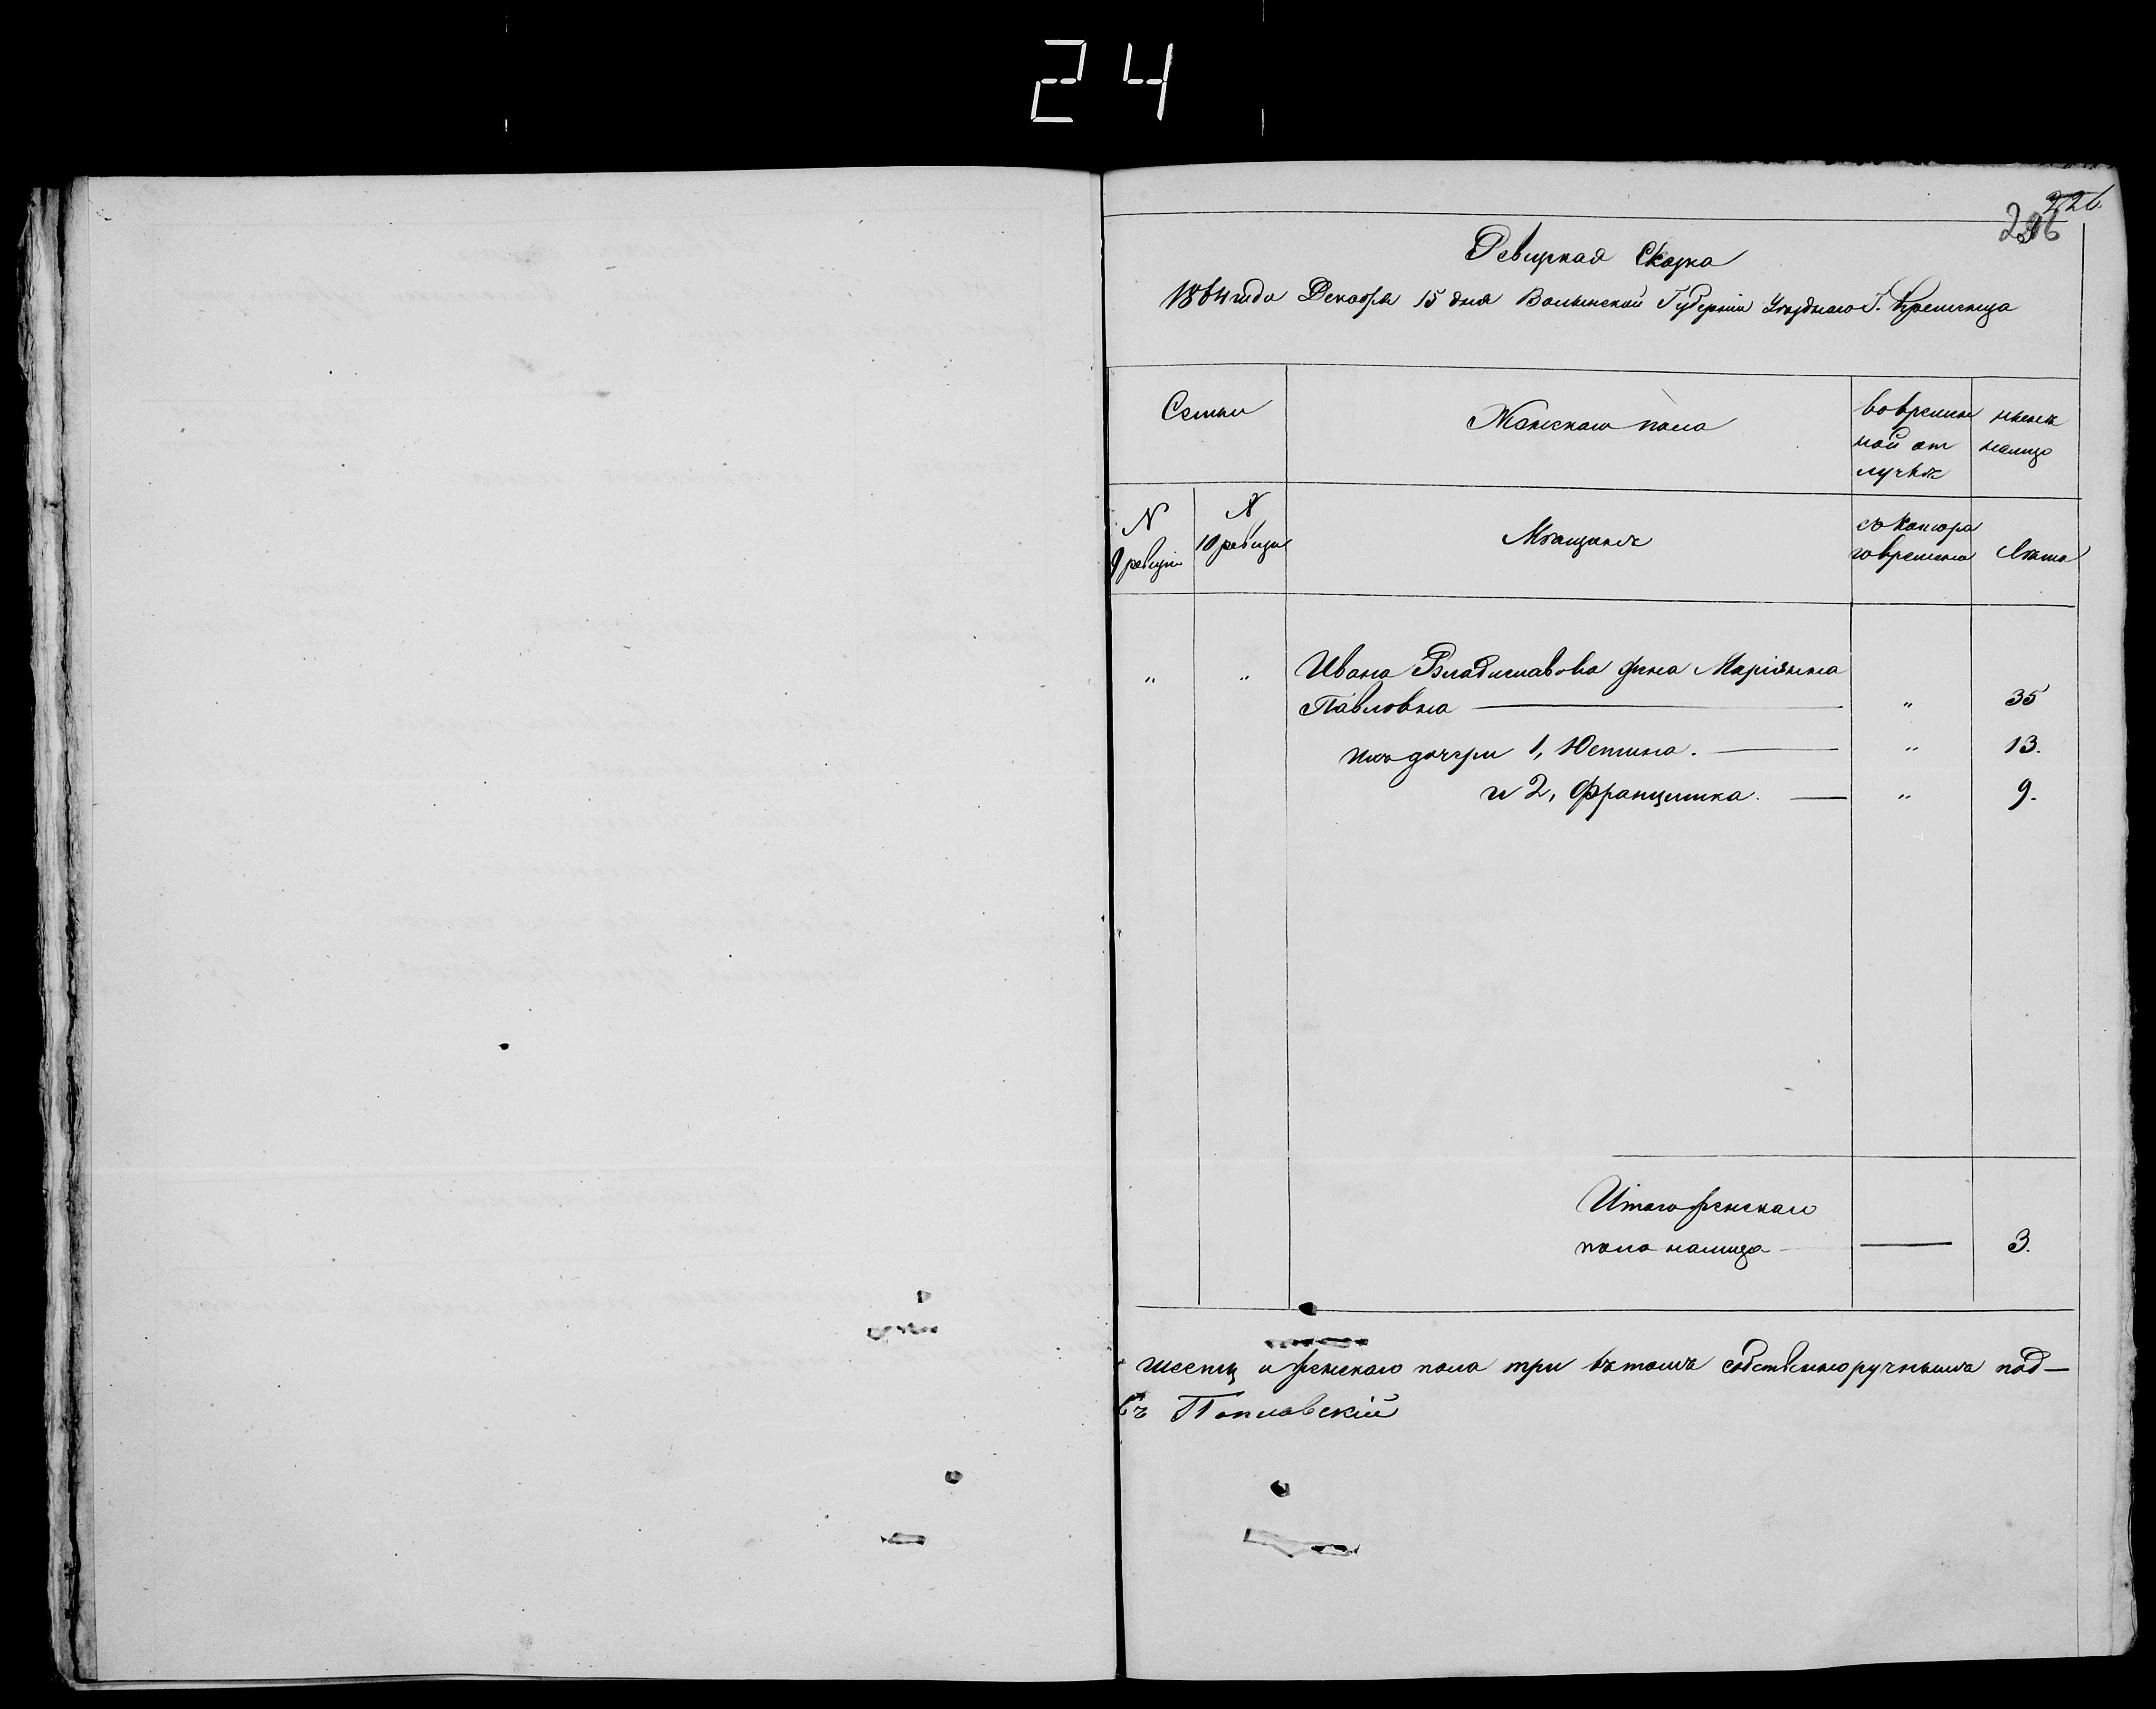 24
226
236
Ревизкая Сказка
1864 года Декабря 15 дня Волынской Губерніи Уѣзднаго Г. Кременца
Семьи
Женскаго пола
Во времен
ной от
лучкѣ
нынѣ
на лицо
N
9 ревизіи
N
10 ревизіи
Мѣщане
съ котора
го времени
Лѣта
" " Ивана Владиславова жена Маріянна
Павловна — " 35
ихъ дочери 1, Юстина. — " 13.
и 2, Францишка. — " 9.
Итого женскаго
пола на лицо — 3.
шесть и женскаго пола три въ томъ собственноручнымъ под—
въ Поплавскій